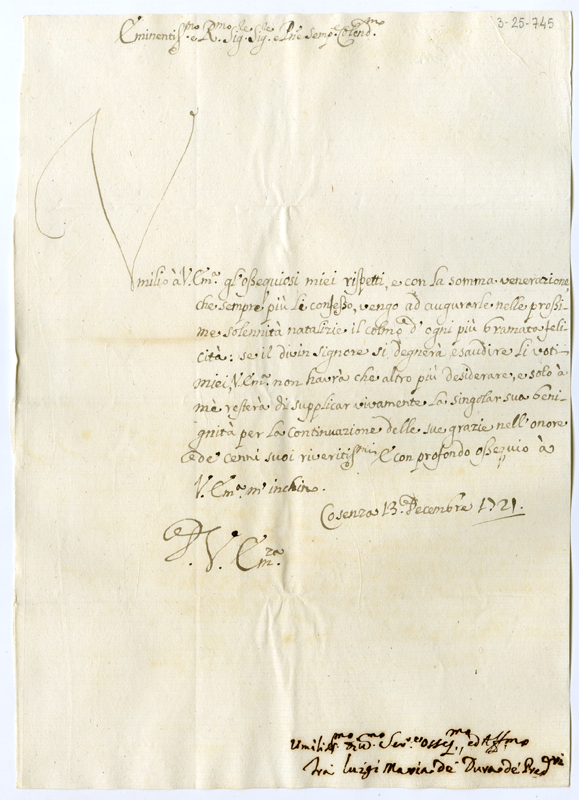 3-25-745
Eminentiss.mo e R.mo Sig.re Sig.re e Pne Semp. Colend.mo
Umilio à V. Em.a gl'ossequiosi miei rispetti, e con la somma venerazione,
che sempre più li confesso, vengo ad augurarle nelle prossi-
me solennità natalizie il colmo d'ogni più bramata feli-
cità: se il divin Signore si degnerà esaudire li voti
miei, V. Em.a non havrà che altro più desiderare, e solo à
me resterà di supplicar vivamente la singolar sua beni-
gnità per la continuazione delle sue grazie nell'onore
de' cenni suoi riveritissimi. E con profondo ossequio à
V. Em.a m'inchino.
Cosenza 13. Decembre 1721.
D. V. Em.za
Umiliss.mo Ser.re Osseq.mo, ed
frà Luigi Maria de